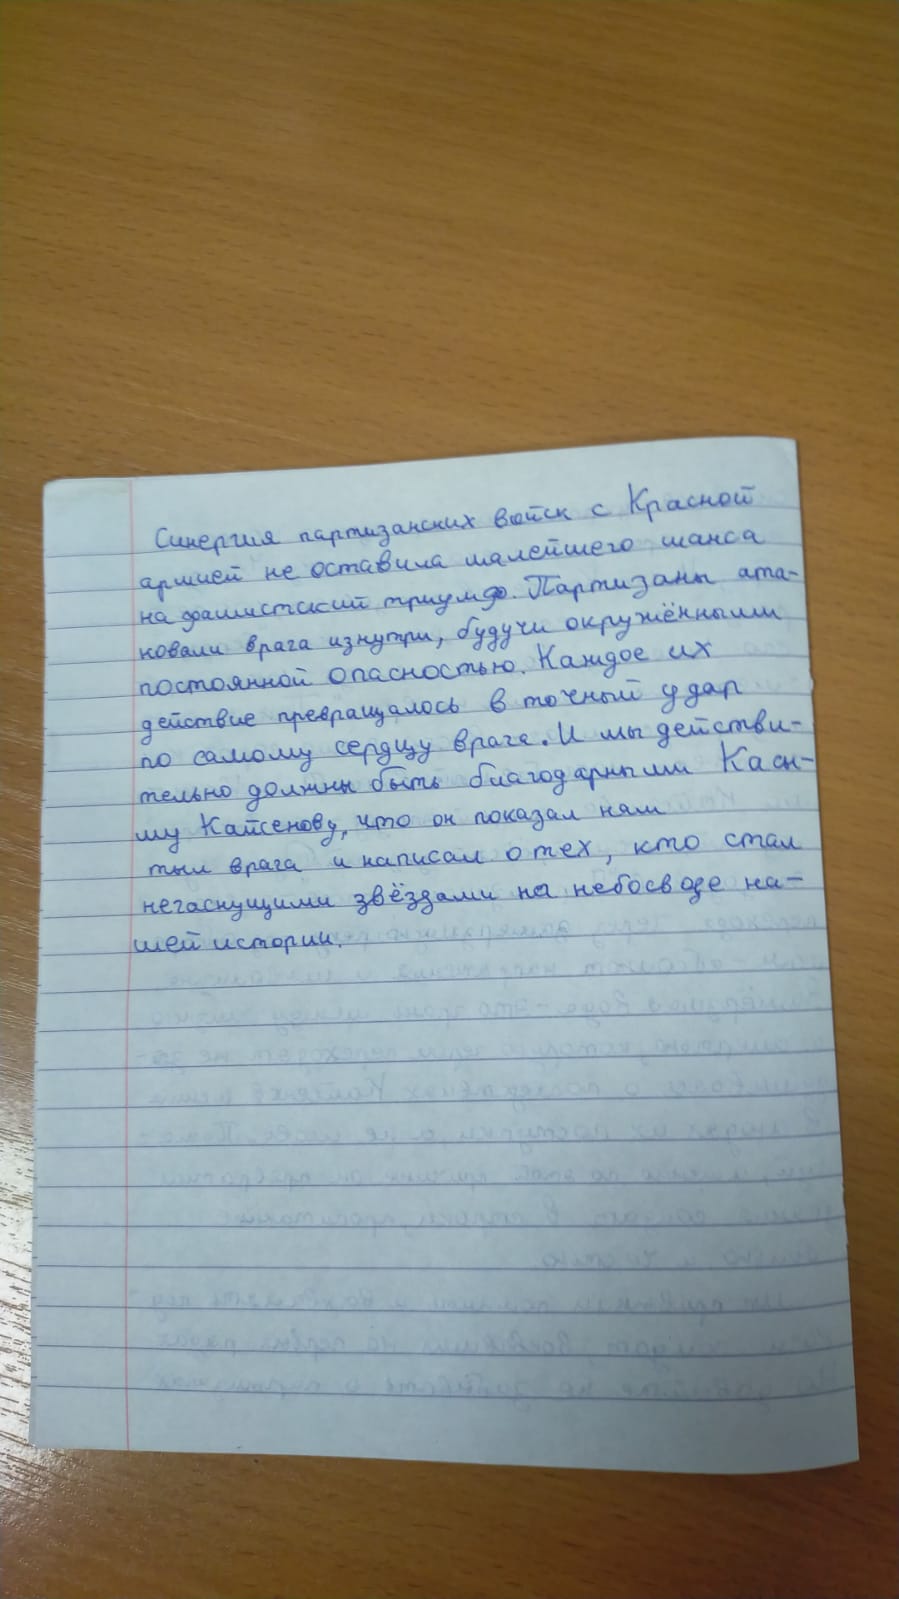 Синергия партизанских войск с Красной
армией не оставила малейшего шанса
на фашистский триумф. Партизаны ата-
ковали врага изнутри, будучи окружёнными
постоянной опасностью. Каждое их
действие превращалось в точный удар
по самому сердцу врага. И мы действи-
тельно должны быть благодарными Касы-
му Кайсенову, что он показал нам
тыл врага и написал о тех, кто стал
негаснущими звёздами на небосводе на-
шей истории.